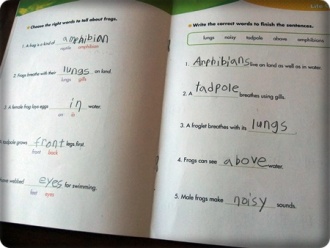 Choose the right words to tell about frogs.
1. A frog is a kind of amphibian
amphibian
2. Frogs breathe with their lungs on land.
lungs gills
3. A female frog lays eggs in water.
in
tadpole grows front legs first.
front back
webbed eyes for swimming.
feet eyes
Write the correct words to finish the sentences.
lungs noisy tadpole above amphibians
1. Amphibians live on land as well as in water.
2. A tadpole breathes using gills.
3. A froglet breathes with its lungs
4. Frogs can see above water.
5. Male frogs make noisy sounds.